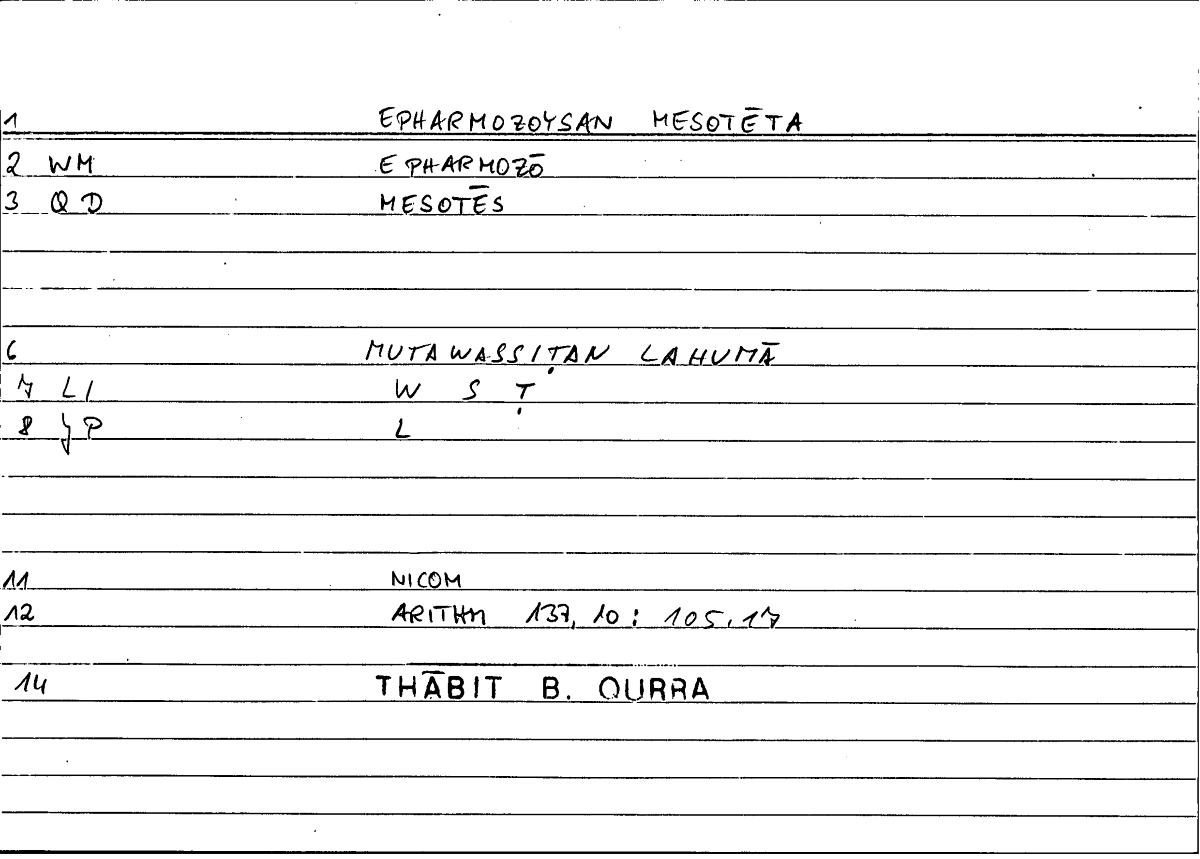 1 EPHARMOZOYSAN MESOTĒTA
2 WM EPHARMOZŌ
3 QD MESOTĒS
6 MUTAWASSIṬAN LAHUMĀ
7 LI W S Ṭ
8 L
11 NICOM
12 ARITHM 137, 10 : 105, 17
14 THĀBIT B. QURRA